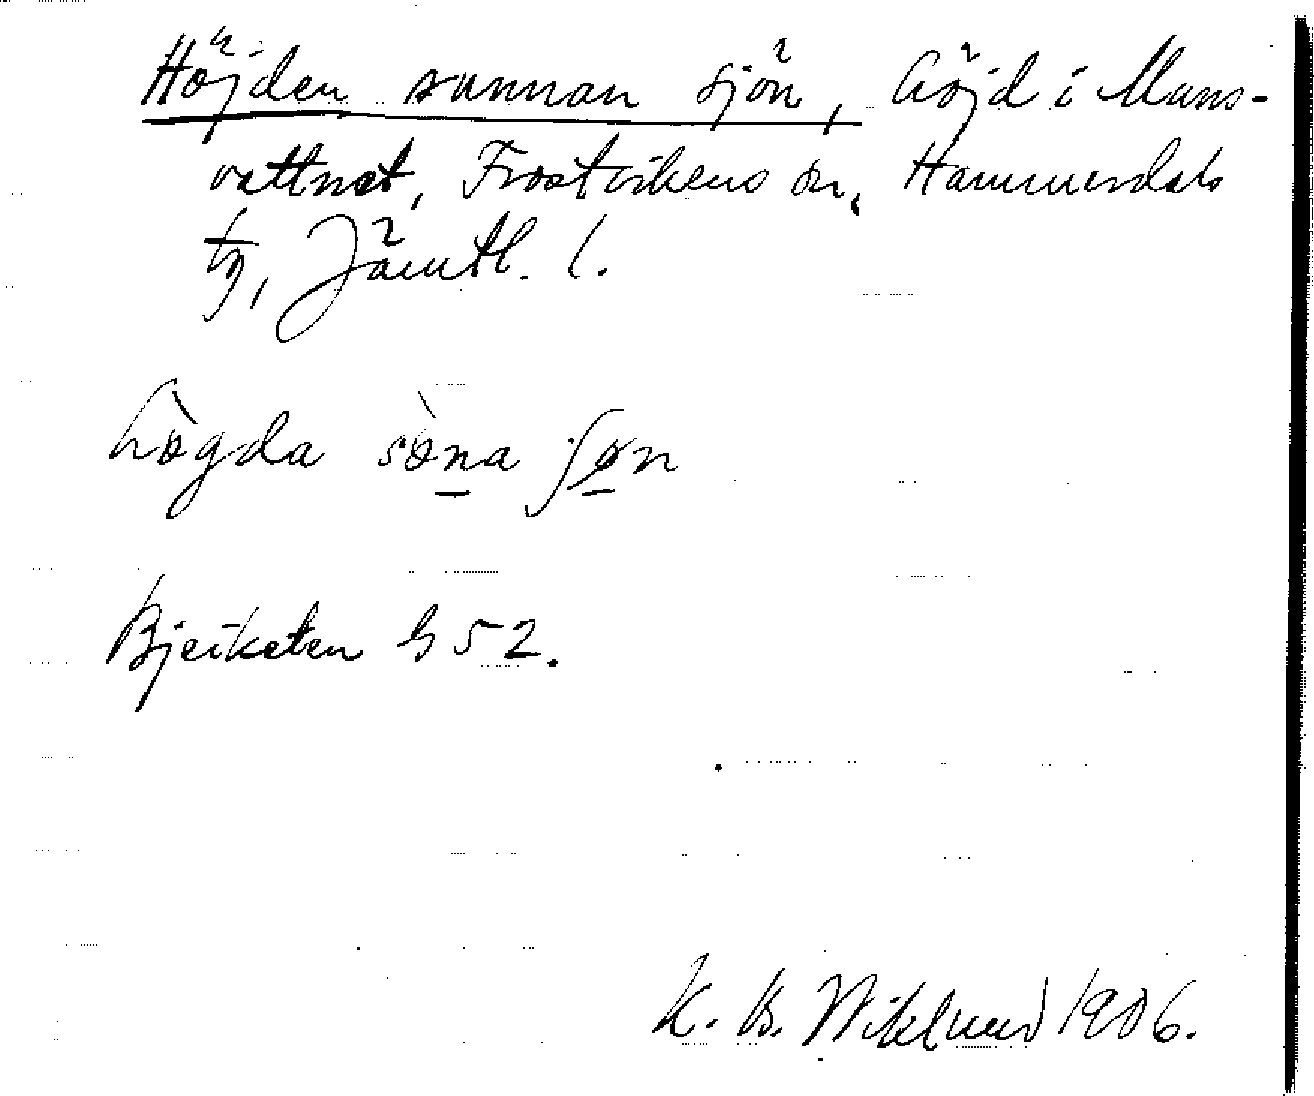 Höjden sunnan sjön, höjd i Muns-
vattnet, Frostvikens sn, Hammerdals
tg, Jämtl. l.
hògda sòna ʃøn
Bjeiketen § 52.
K. B. Wiklund 1906.